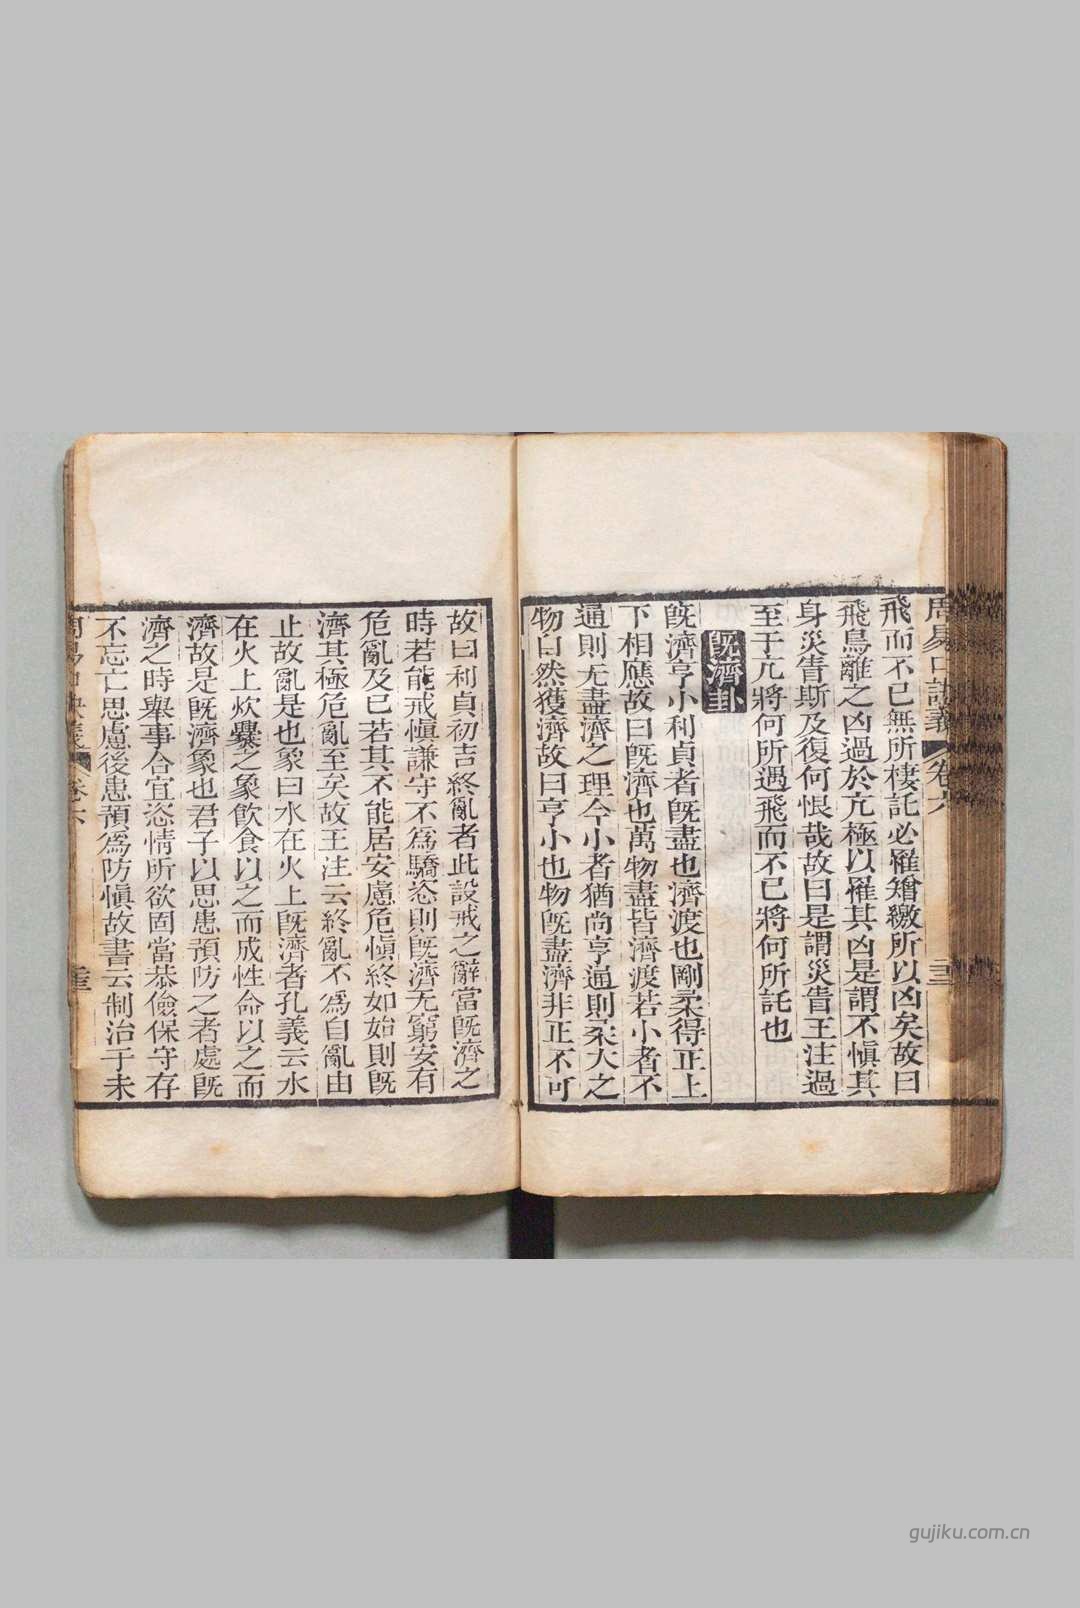 周易口訣義 卷六
飛而不已無所棲託必罹矰繳所以凶矣故曰
飛鳥離之凶過於亢極以罹其凶是謂不慎其
身災眚斯及復何恨哉故曰是謂災眚王注過
至于亢將何所遇飛而不已將何所託也
旣濟卦
旣濟亨小利貞者旣盡也濟渡也剛柔得正上
下相應故曰旣濟也萬物盡皆濟渡若小者不
通則无盡濟之理今小者猶尚亨通則柔大之
物自然獲濟故曰亨小也物旣盡濟非正不可
故曰利貞初吉終亂者此設戒之辭當旣濟之
時若能戒慎謙守不爲驕恣則旣濟无窮安有
危亂及已若其不能居安慮危愼終如始則旣
濟其極危亂至矣故王注云終亂不爲自亂由
止故亂是也象曰水在火上旣濟者孔義云水
在火上炊爨之象飲食以之而成性命以之而
濟故是旣濟象也君子以思患預防之者處旣
濟之時舉事合宜恣情所欲固當恭儉保守存
不忘亡思慮後患預爲防愼故書云制治于未
周易口訣義 卷六